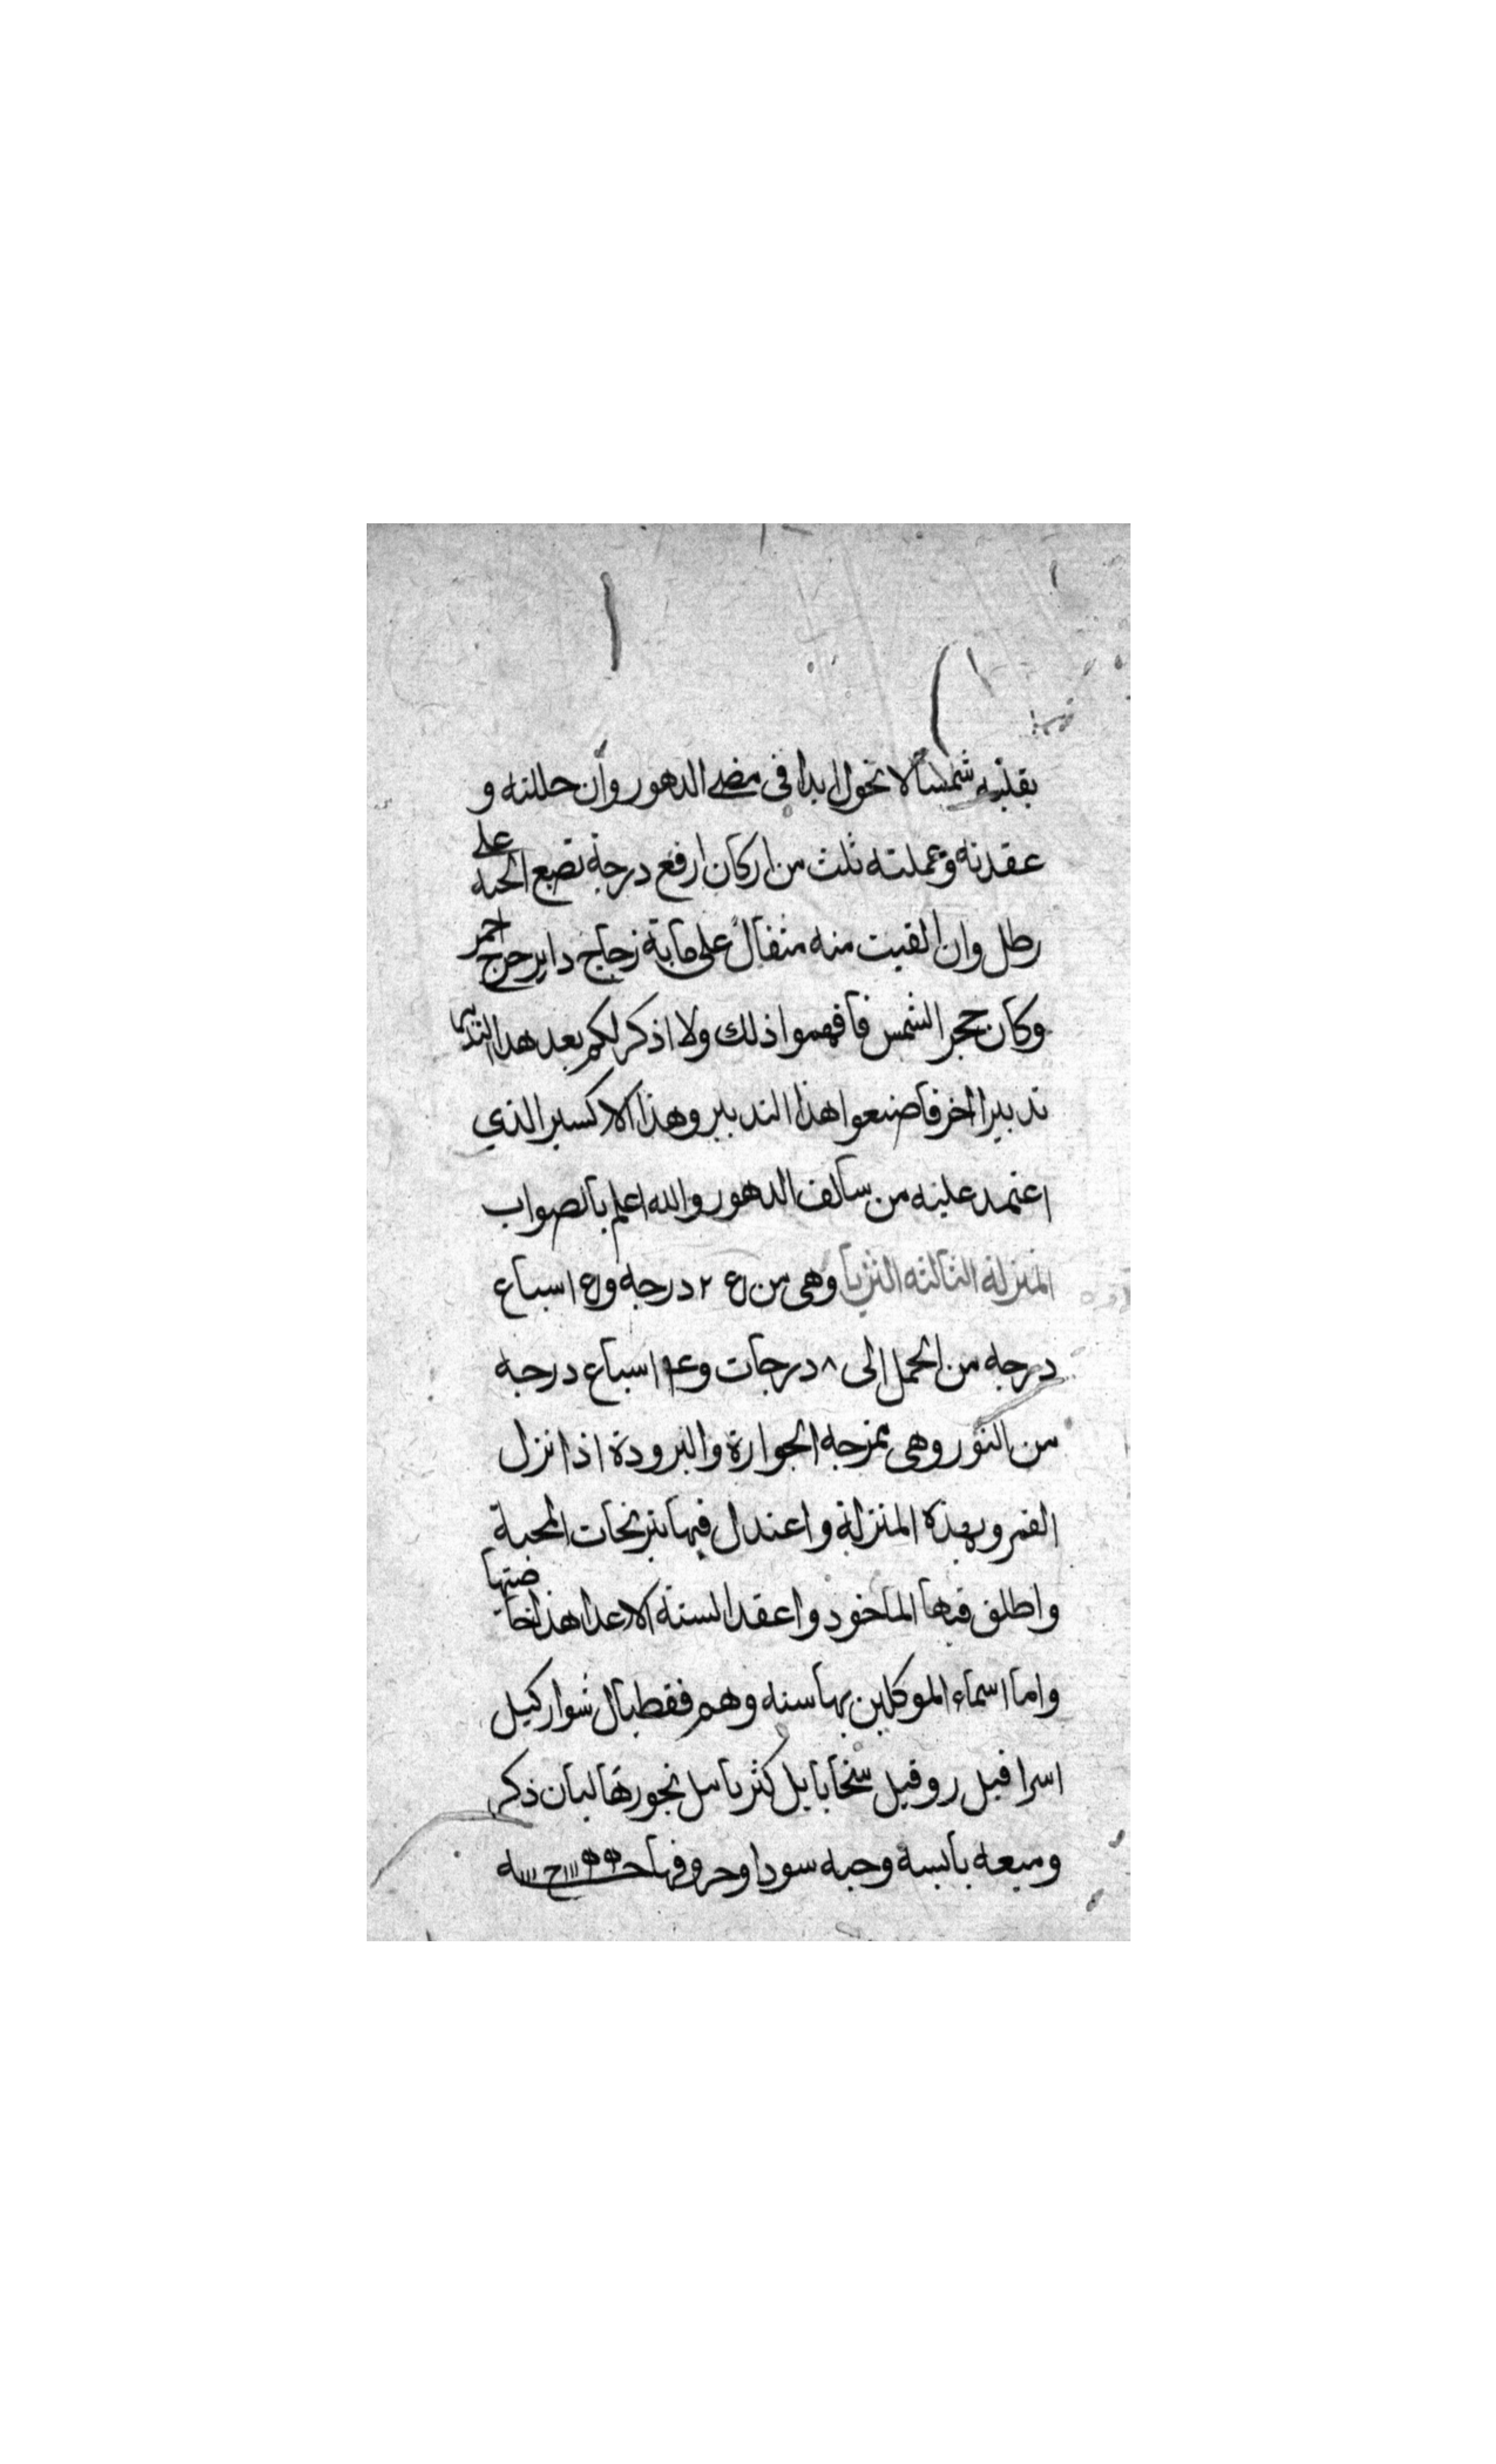 بقلبه شمسا لا تحول ابدا في مضى الدهور وان حللته و
عقدته وعملته ثلث من اركان ارفع درجة تصبع الحبه على
رطل وان القيت منه مثقال على ماية زجاج داير خرج احمر
وكان حجر الشمس فافهموا ذلك ولا اذكر لكم بعد هذا
تدبيرا اخر فاصنعوا هذا التدبير وهذا الاكسير الذي
اعتمد عليه من سالف الدهور والله اعلم بالصواب
المنزلة الثالثه الثريا وهى من ٢ درجه اسباع
درجه من الحمل الى ٨ درجات اسباع درجه
من الثور وهى ممزجه الحرارة والبرودة اذا نزل
القمر وبهذه المنزلة واعتدل فيها نيرنجات المحبة
واطلق فيها الماخود واعقد السنة الاعدا هذا خاصتها
واما اسماء الموكلين بها سته وهم فقطيال شواركيل
اسرافيل روفيل بخورتها لبان ذكر
وميعه يابسه وحبه سودا وحروفها